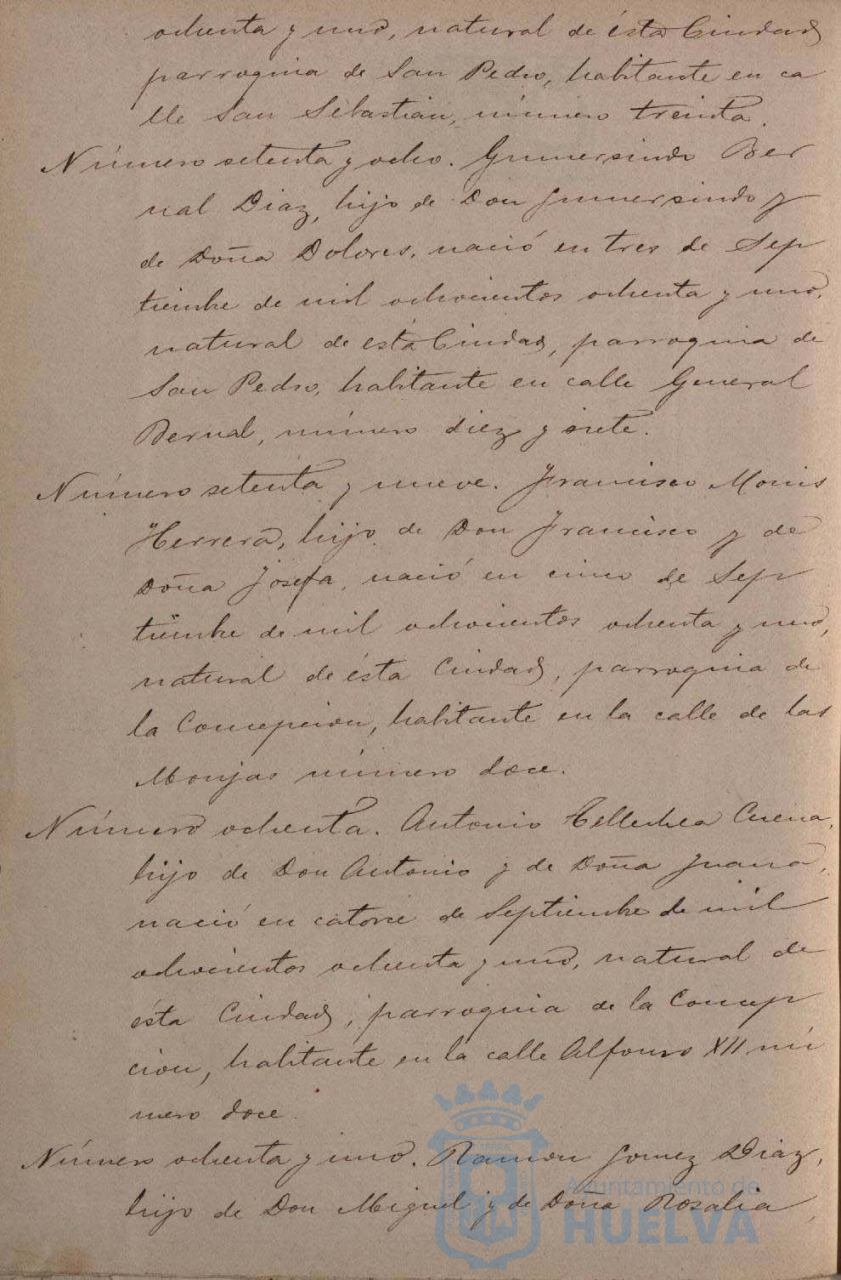 ochenta y uno, natural de ésta Ciudad
parroquia de San Pedro, habitante en ca
lle San Sebastian, número treinta.
Número setenta y ocho. Gumersindo Ber
nal Diaz, hijo de Don Gumersindo y
de Doña Dolores, nació en tres de Sep
tiembre de mil ochocientos ochenta y uno,
natural de ésta Ciudad, parroquia de
San Pedro, habitante en calle General
Bernal, número diez y siete.
Número setenta y nueve. Francisco Monis
Herrera, hijo de Don Francisco y de
Doña Josefa, nació en cinco de Sep
tiembre de mil ochocientos ochenta y uno,
natural de ésta Ciudad, parroquia de
la Concepcion, habitante en la calle de las
Monjas número doce.
Número ochenta. Antonio Tellechea
hijo de Don Antonio y de Doña Juana,
nació en catorce de Septiembre de mil
ochocientos ochenta y uno, natural de
ésta Ciudad, parroquia de la Concep
cion, habitante en la calle Alfonso XII nú
mero doce.
Número ochenta y uno. Ramon Gomez Diaz,
hijo de Don Miguel y de Doña Rosalia,
Ayuntamiento de
HUELVA